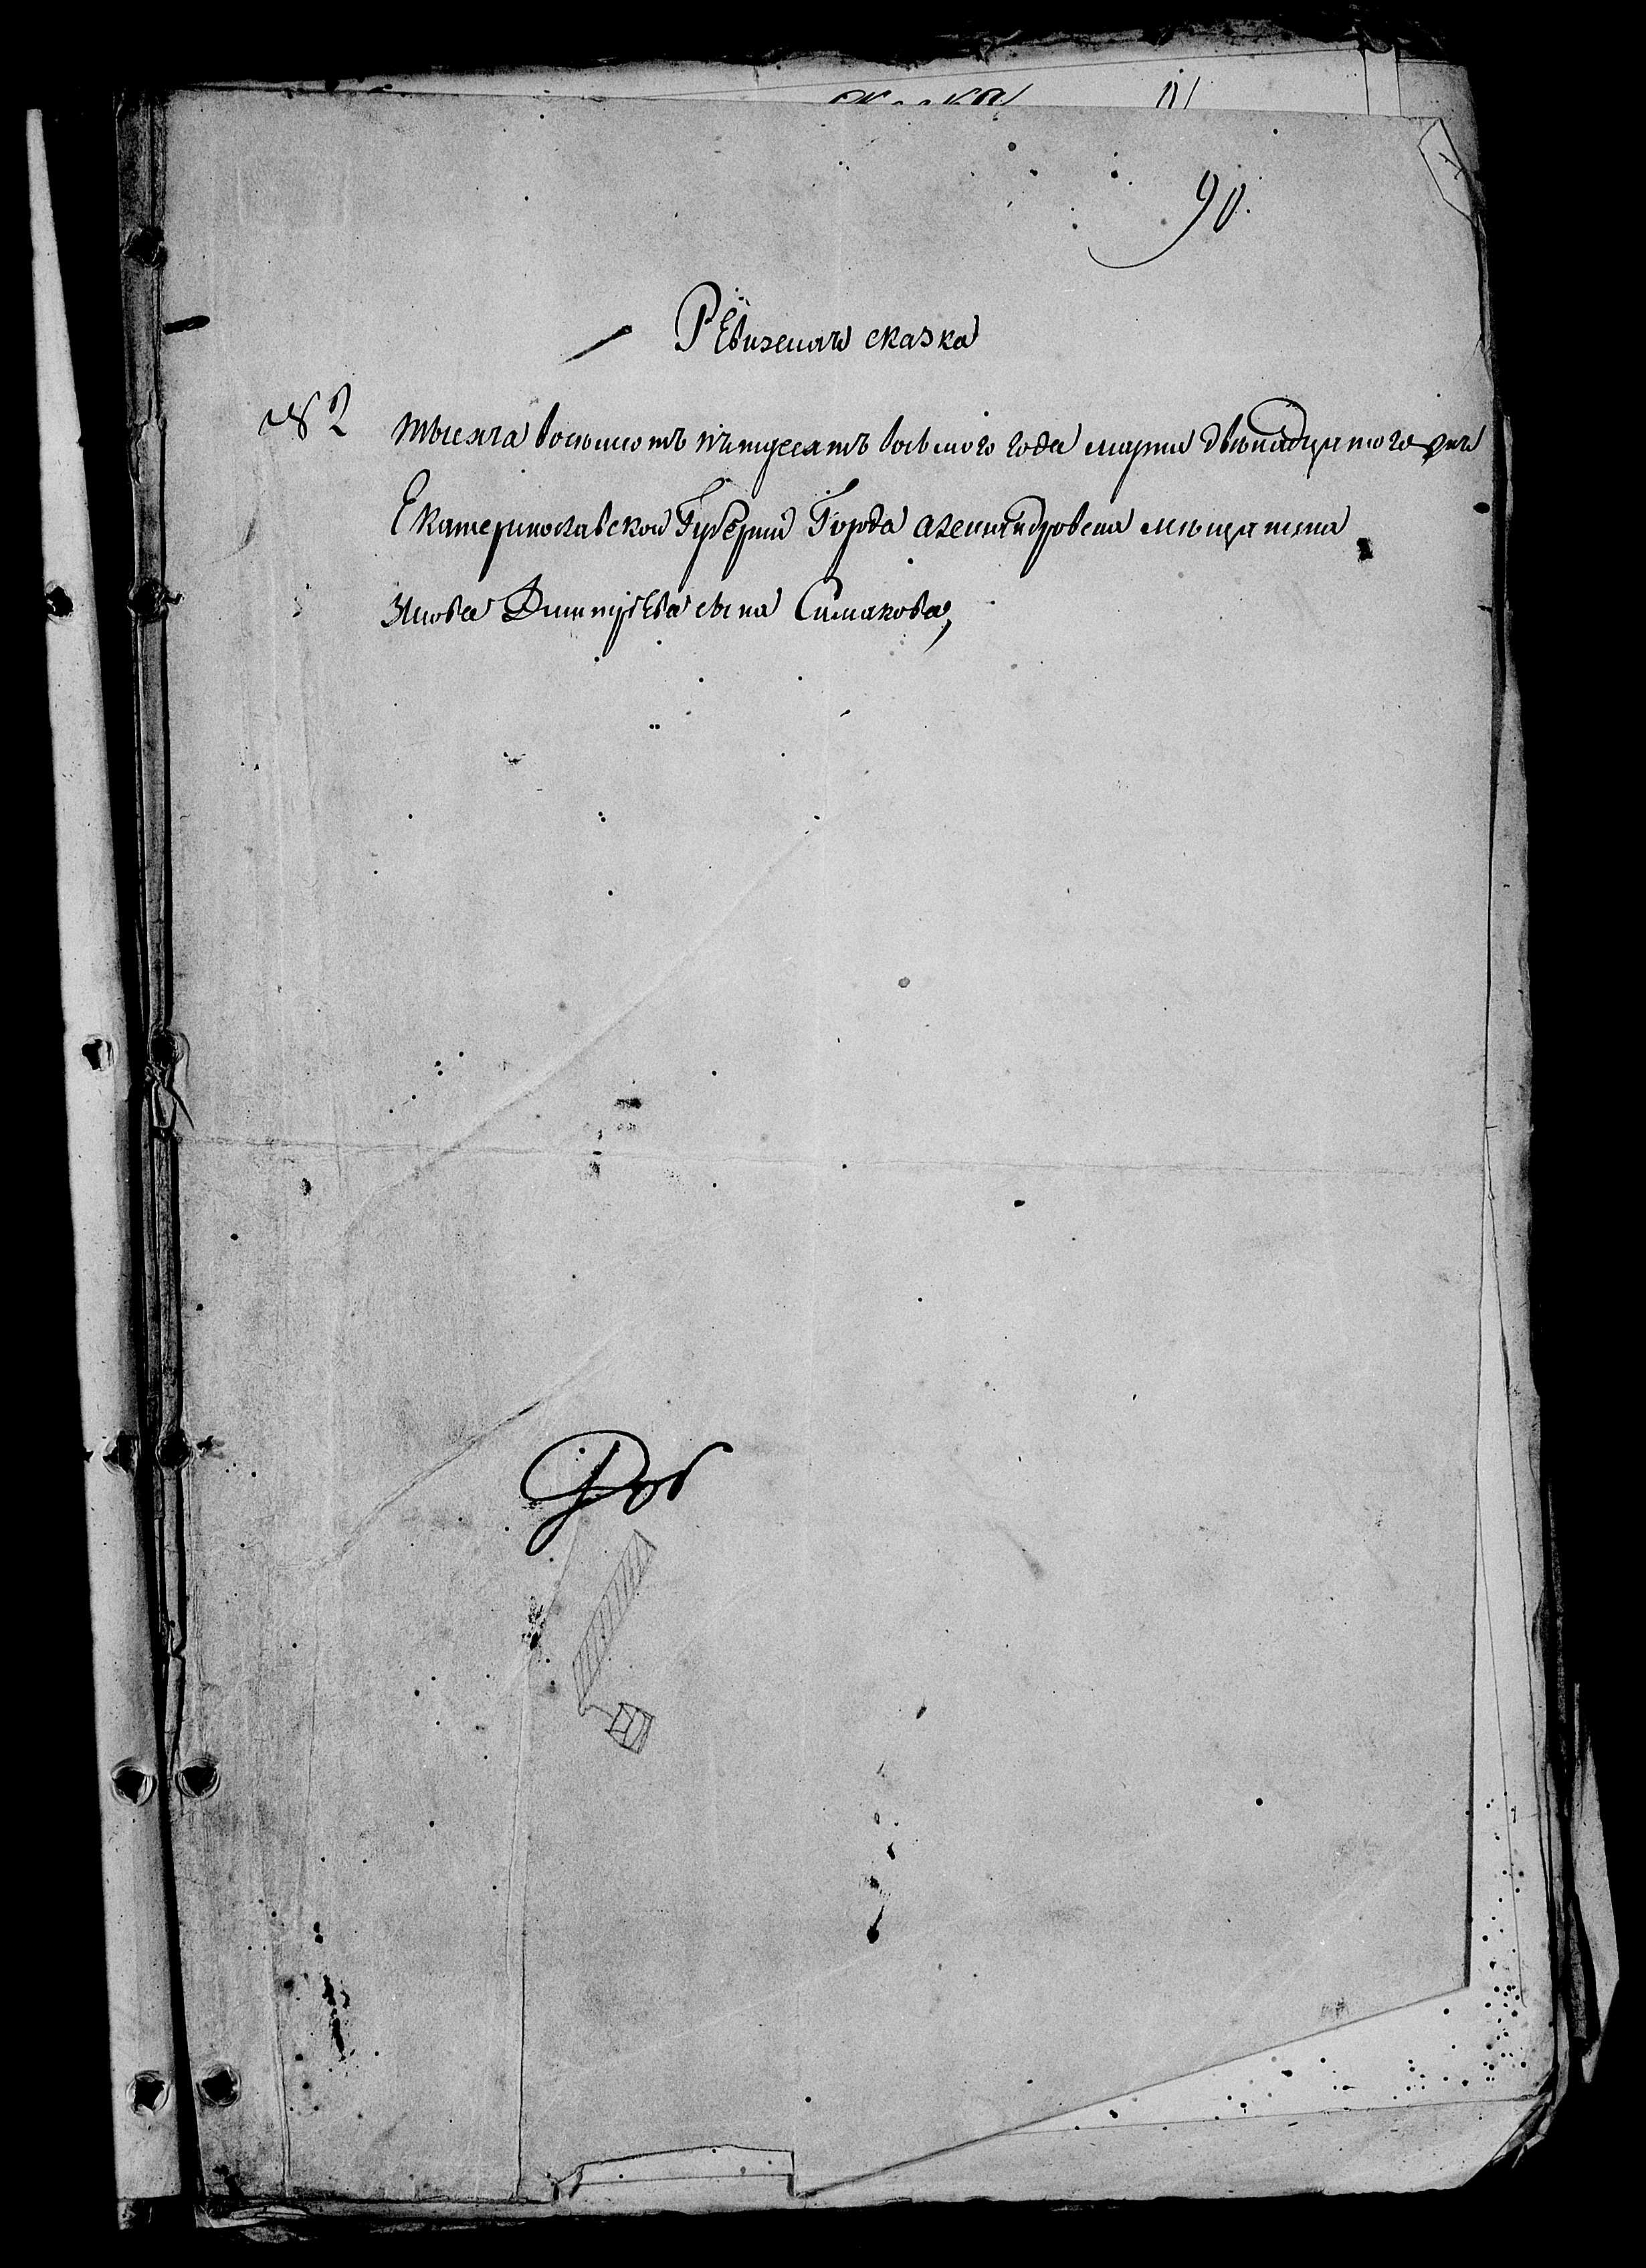 90.
Ревизская сказка
№ 2 тысяча восемьсотъ пятдесятъ восьмого года марта двенадцатого дня
Екатеринославской Губернiи Города александровска мещанина
Дмитрiева сына Симакова,